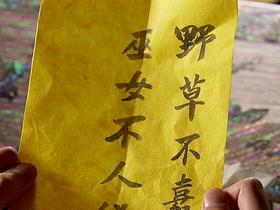 野草不嘉
巫女不人